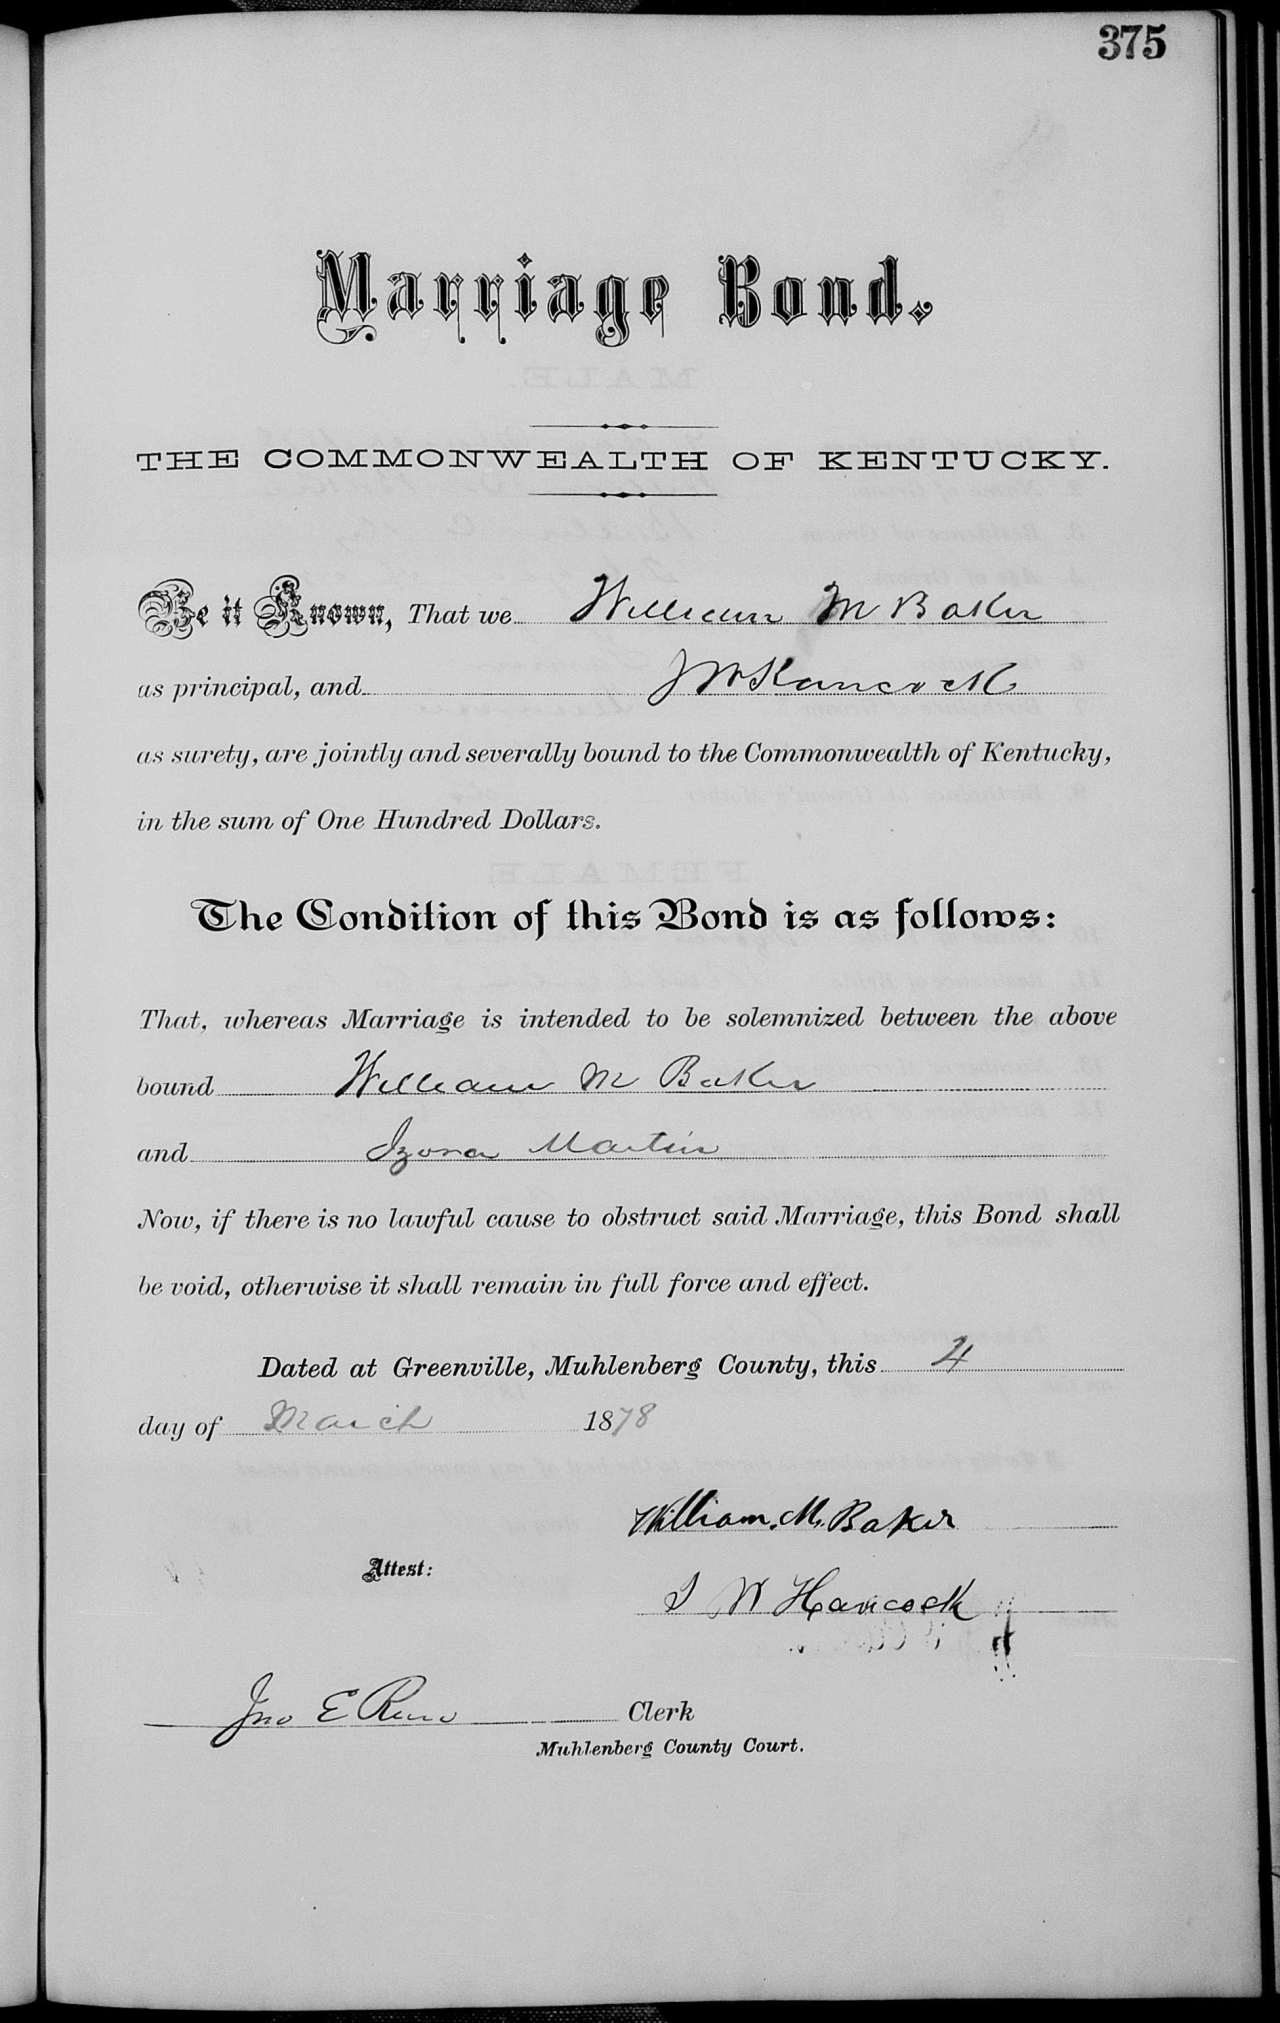 375
Marriage Bond.
THE COMMONWEALTH OF KENTUCKY.
Be it Known, That we William M Baker
as principal, and J W Hancock
as surety, are jointly and severally bound to the Commonwealth of Kentucky,
in the sum of One Hundred Dollars.
The Condition of this Bond is as follows:
That, whereas Marriage is intended to be solemnized between the above
bound William M Baker
and Izora Martin
Now, if there is no lawful cause to obstruct said Marriage, this Bond shall
be void, otherwise it shall remain in full force and effect.
Dated at Greenville, Muhlenberg County, this 4
day of March 1878
William. M. Baker
Attest:
J W Hancock
Jno E Reno Clerk
Muhlenberg County Court.